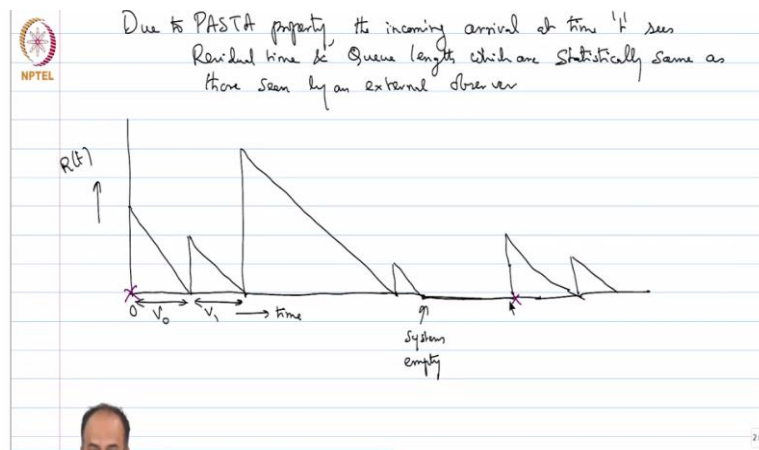 Due to PASTA property, the incoming arrival at time 't' sees
Residual time & Queue length which are statistically same as
those seen by an external observer
NPTEL
R(t)
0 V₀ V₁ → time
System
empty